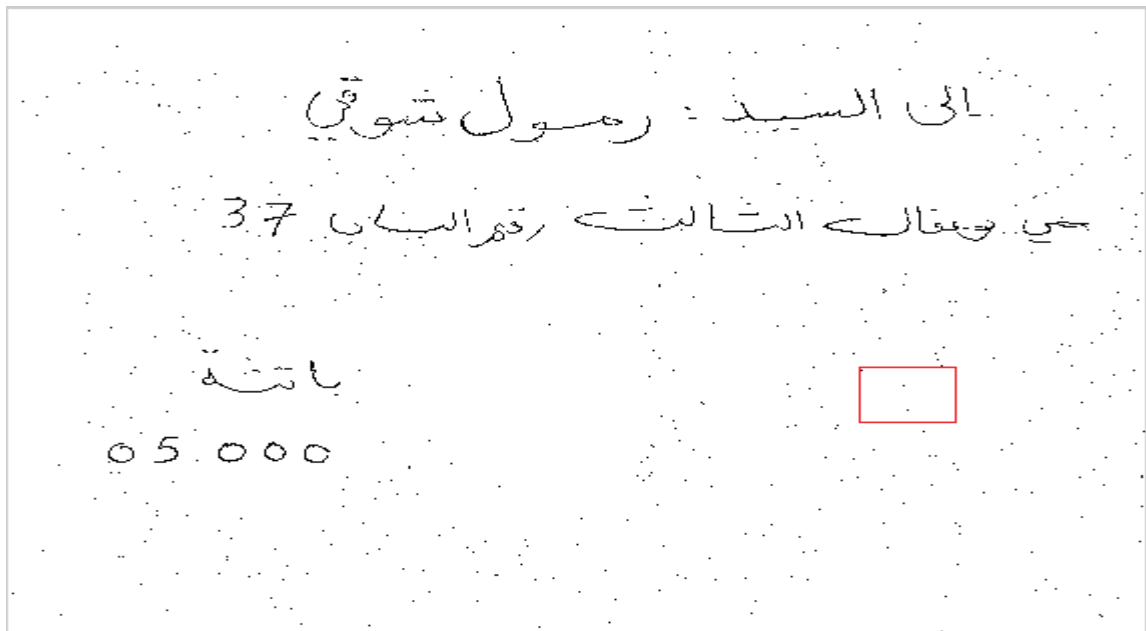 الى السيد : رحمول شوقي
حي بوعقال الثالث رقم الباب 37
باتنة
05 000